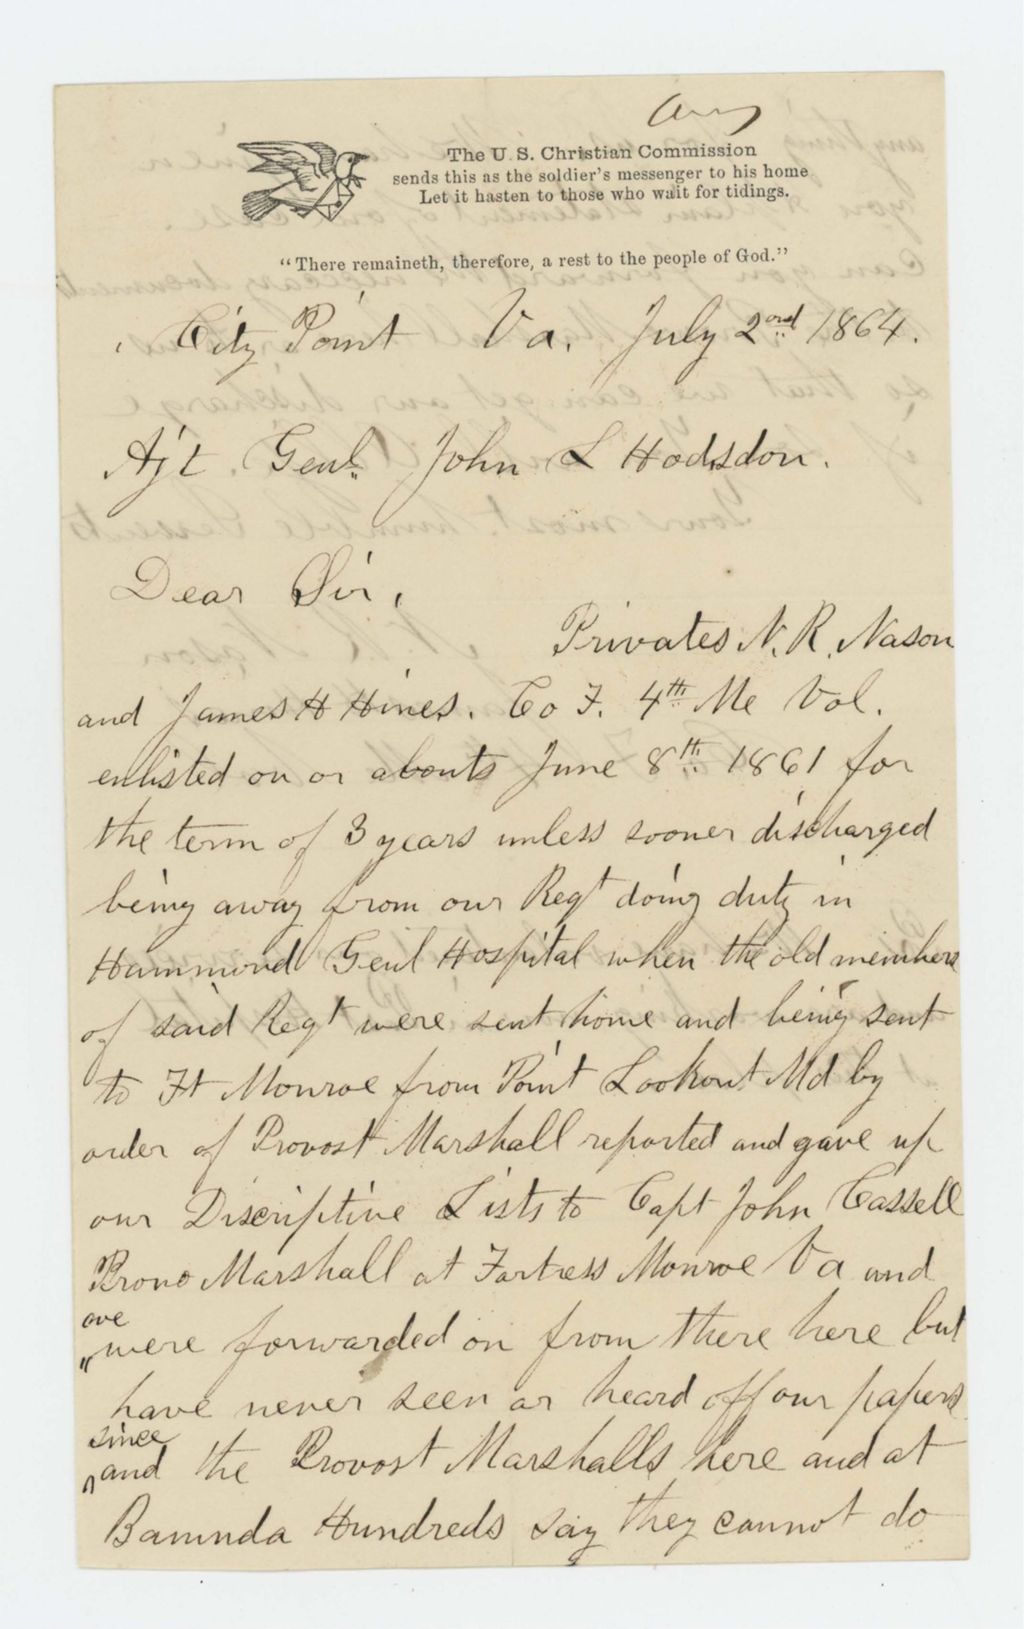 The U. S. Christian Commission
sends this as the soldier's messenger to his home
Let it hasten to those who wait for tidings.
"There remaineth, therefore, a rest to the people of God."
City Point Va. July 2ond 1864.
Ajt. Genl. John L Hodsdon.
Dear Sir,
Privates N. R. Nason
and James H Hines. Co F. 4th Me Vol.
enlisted on or abouts June 8th 1861 for
the term of 3 years unless sooner discharged
being away from our Regt doing duty in
Hammond Genl Hospital when the old members
of said Regt were sent home and being sent
to Ft Monroe from Point Lookout Md by
order of Provost Marshall reported and gave up
our Discriptive Lists to Capt John Cassell
Provo Marshall at Fortress Monroe Va and
were forwarded on from there here but
have never seen or heard off our papers
since
and the Provost Marshalls here and at
Bamnda Hundreds say they cannot do